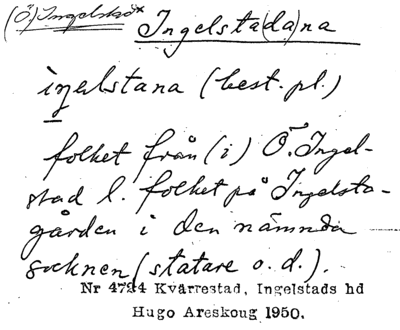 (Ö) Ingelstad* Ingelsta(da)na
iŋəlstana (best. pl.)
folket från (i) Ö. Ingel-
stad l. folket på Ingelsta-
gården i den nämnda
socknen (statare o. d.).
Nr 4724 Kvärrestad, Ingelstads hd
Hugo Areskoug 1950.